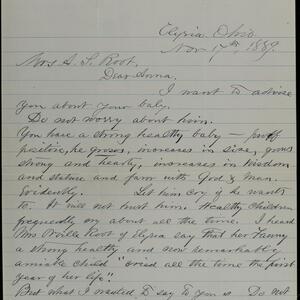 Elyria Ohio
Nov 17th, 1889.
Mrs A. S. Root.
Dear Anna.
I want to advise
you about your baby.
Do not worry about him.
You have a strong healthy baby — proff
positive, he grows, increases in size, grows
strong and hearty, increases in wisdom
and stature and favor with God & Man.
Evidently. Let him cry if he wants
to. It will not hurt him. Healthy Children
frequently do about all the time. I heard
Mrs Orville Root of Elyria say that her Fanny
a strong healthy and now remarkably
amiable child "cried all the time the first
year of her life".
But what I wanted to say to you is Do not